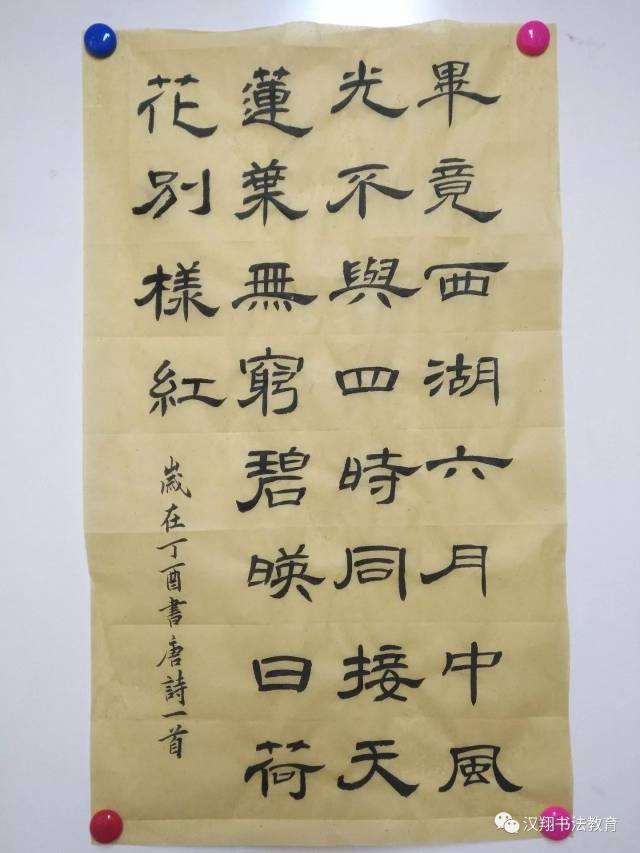 畢竟西湖六月中風
光不與四時同接天
蓮葉無窮碧暎日荷
花別樣紅
歲在丁酉書唐詩一首
汉翔书法教育